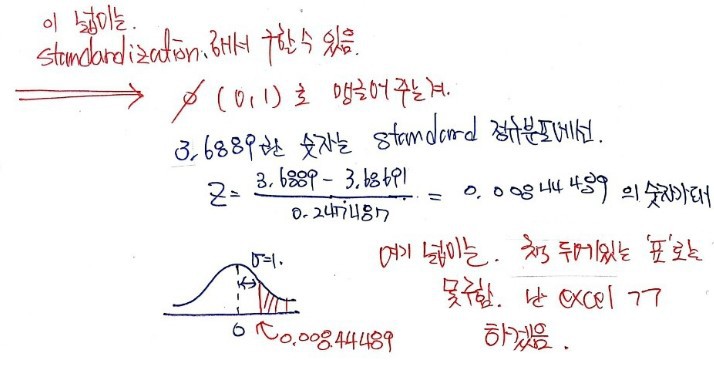 이 넓이는.
standardization.해서 구할수 있음.
φ (0,1) 로 맹글어주는겨.
3.6889란 숫자는 standard 정규분포에선.
Z= 3.6889 - 3.68691 / 0.2474487 = 0.00844489 의 숫자가 돼
σ=1.
여기 넓이는. 책 뒤에있는 '표'로는
못구함. 난 excel ㄱㄱ
하겠음.
0
0.00844489